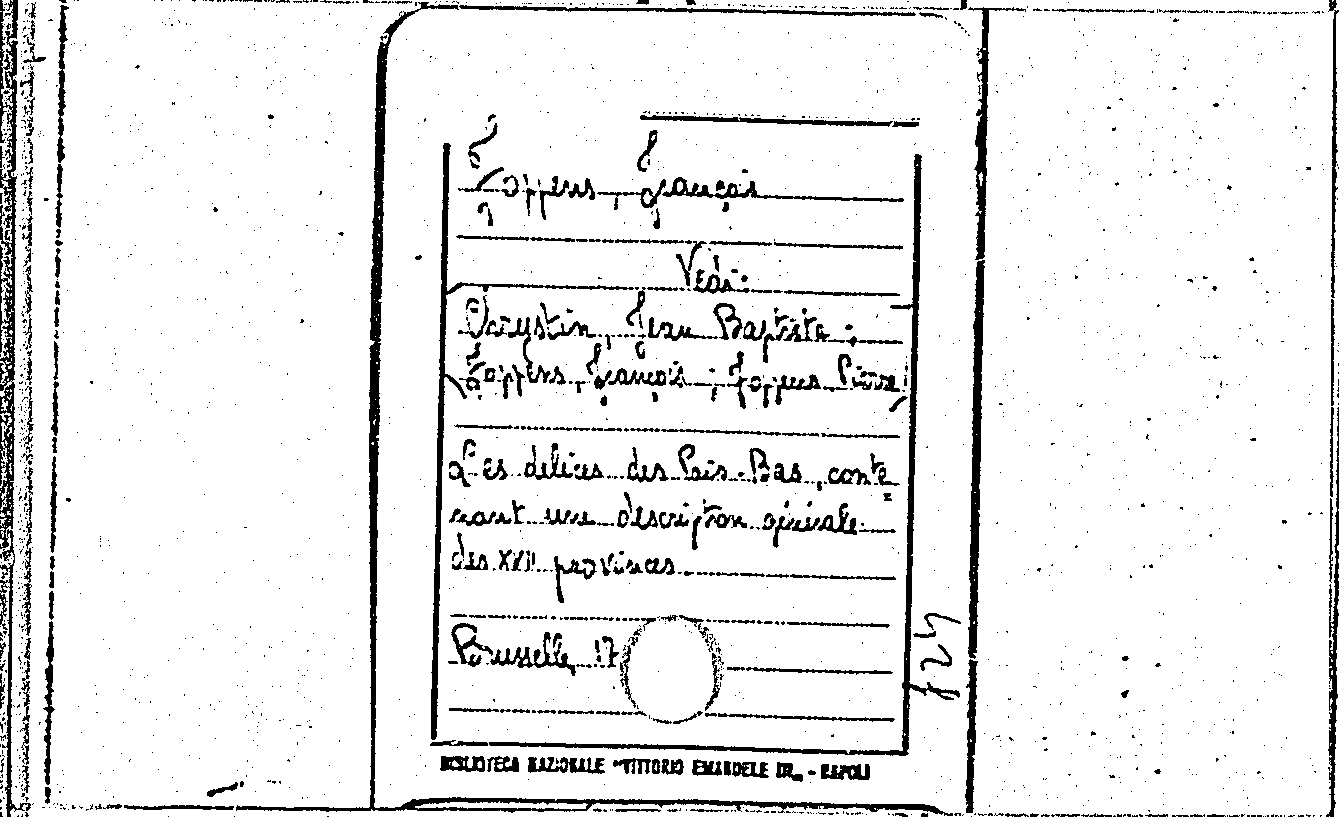 Foppens, François
Vedi:
Chrystin, Jean Baptiste;
Foppens, François; Foppens Pierre
Les delices des Païs-Bas, conte=
nant une description générale
des XVII provinces.
Bruxelle, 17
BIBLIOTECA NAZIONALE "VITTORIO EMANUELE III„ - NAPOLI